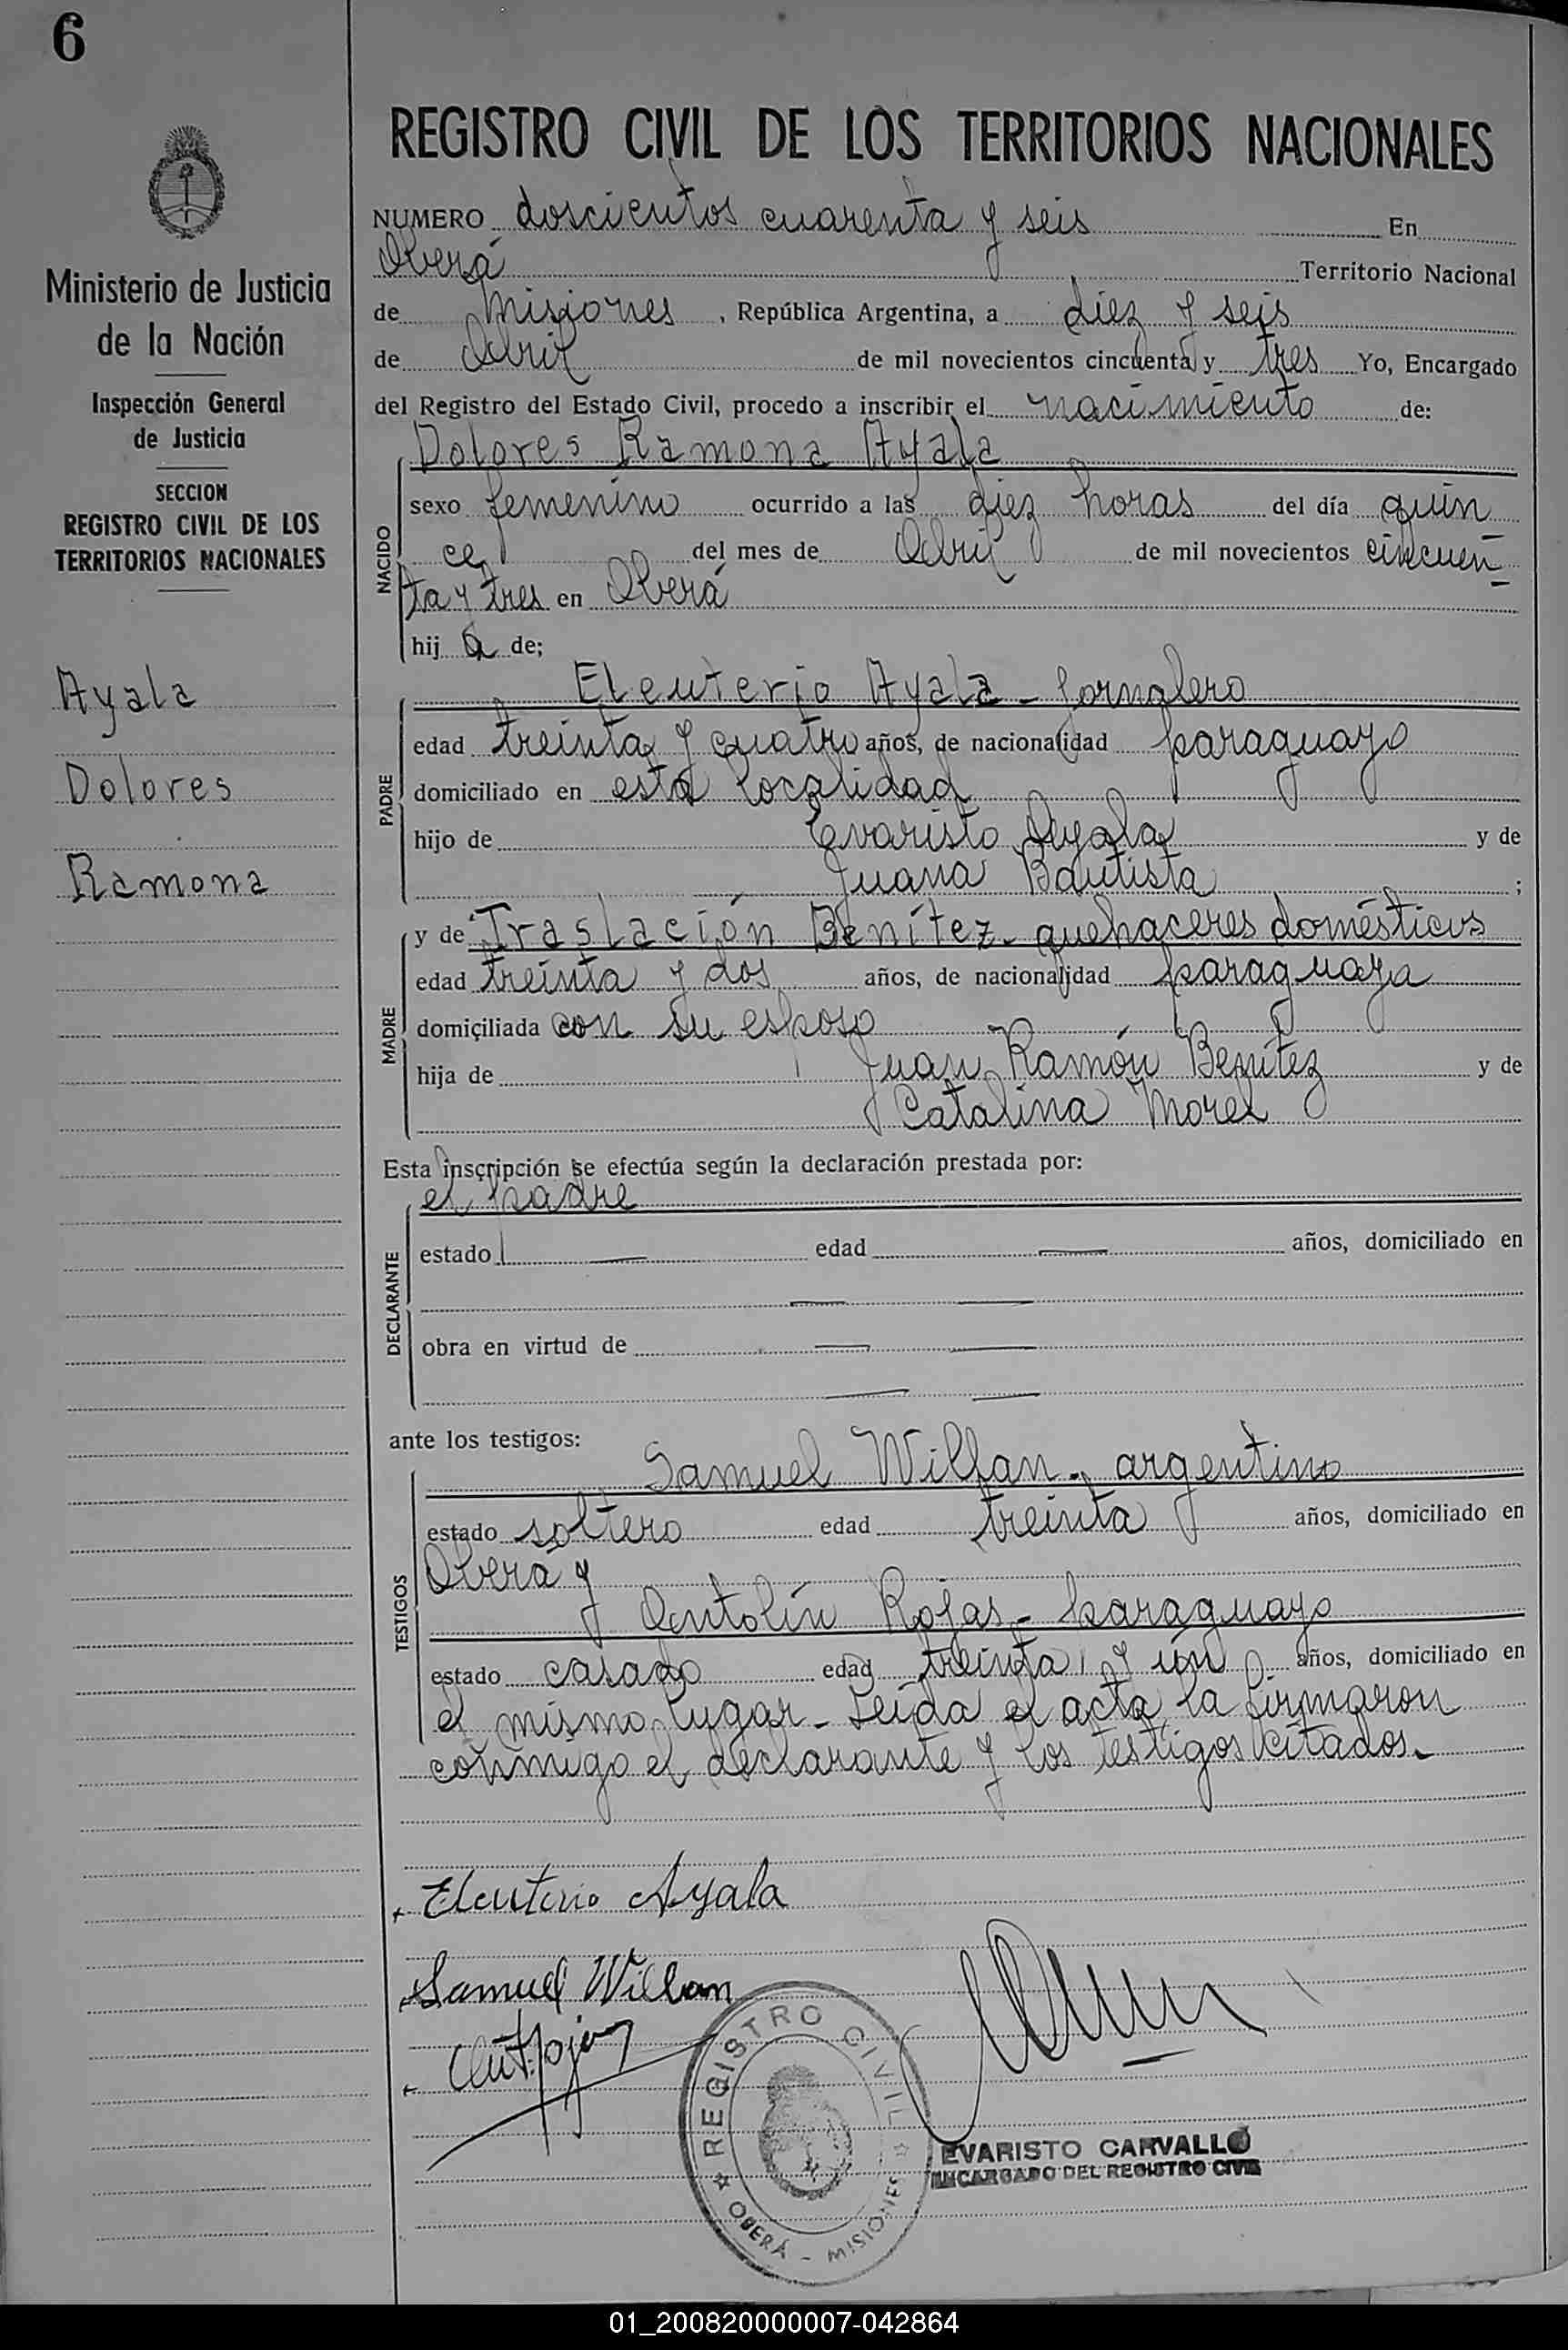 6
REGISTRO CIVIL DE LOS TERRITORIOS NACIONALES
NUMERO doscientos cuarenta y seis En
Oberá Territorio Nacional
de Misiones, República Argentina, a diez y seis
de Abril de mil novecientos cincuenta y tres Yo, Encargado
del Registro del Estado Civil, procedo a inscribir el nacimiento de:
Dolores Ramona Ayala
NACIDO
sexo femenino ocurrido a las diez horas del día quin
ce del mes de Abril de mil novecientos cincuen-
ta y tres en Oberá
hij a de;
Eleuterio Ayala - jornalero
PADRE
edad treinta y cuatro años, de nacionalidad paraguayo
domiciliado en esta localidad
hijo de Evaristo Ayala y de
Juana Bautista ;
y de Traslación Benítez - quehaceres domésticos
MADRE
edad treinta y dos años, de nacionalidad paraguaya
domiciliada con su esposo
hija de Juan Ramón Benítez y de
Catalina Morel
Esta inscripción se efectúa según la declaración prestada por:
el padre
DECLARANTE
estado — edad — años, domiciliado en
— —
obra en virtud de — —
— —
ante los testigos:
Samuel Willan - argentino
TESTIGOS
estado soltero edad treinta años, domiciliado en
Oberá y
Antolín Rojas - paraguayo
estado casado edad treinta y un años, domiciliado en
el mismo lugar - Leída el acta la firmaron
conmigo el declarante y los testigos citados.
Eleuterio Ayala
Samuel Willan
REGISTRO CIVIL
OBERÁ - MISIONES
EVARISTO CARVALLO
ENCARGADO DEL REGISTRO CIVIL
Ministerio de Justicia
de la Nación
Inspección General
de Justicia
SECCION
REGISTRO CIVIL DE LOS
TERRITORIOS NACIONALES
Ayala
Dolores
Ramona
01_200820000007-042864